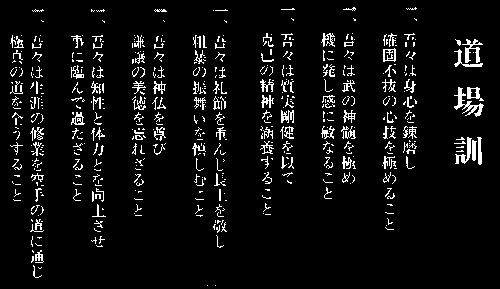 道場訓
一、吾々は身心を錬磨し
確固不抜の心技を極めること
一、吾々は武の神髄を極め
機に発し感に敏なること
一、吾々は質実剛健を以て
克己の精神を涵養すること
一、吾々は礼節を重んじ長上を敬し
粗暴の振舞いを慎しむこと
一、吾々は神仏を尊び
謙譲の美徳を忘れざること
一、吾々は知性と体力とを向上させ
事に臨んで過たざること
一、吾々は生涯の修業を空手の道に通じ
極真の道を全うすること